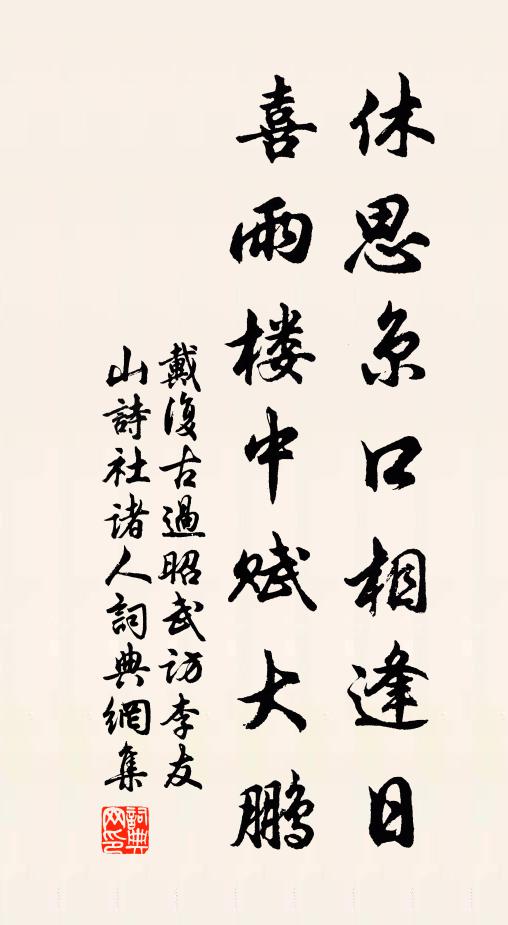 休思京口相逢日
喜雨楼中赋大鹏
戴復古過昭武访李友
山詩社诸人詞典網集
詞典網印